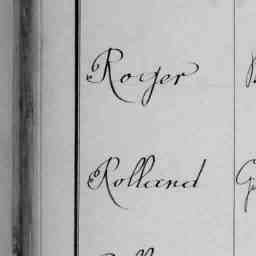 Roger
Rolland